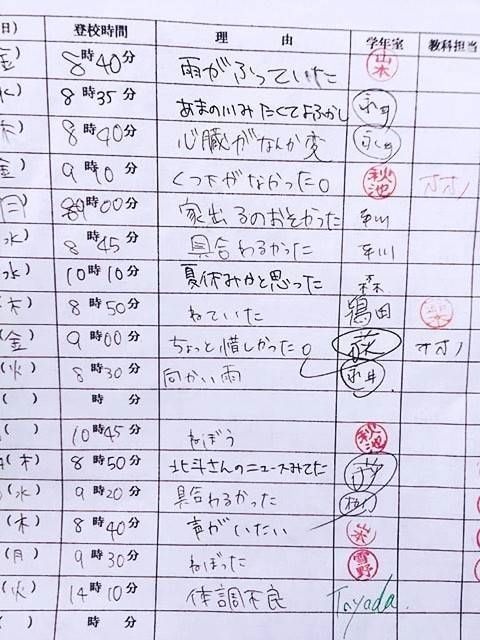 日) 登校時間 理由 学年室 教科担当
金) 8時40分 雨がふっていた
水) 8時35分 あまの川みたくてよふかし 永井
木) 8時40分 心臓がなんか変 永井
金) 9時10分 くつ下がなかった。 秋池 オオノ
(月) 8時00分 家出るのおそかった 平川
水) 8時45分 具合わるかった 平川
水) 10時10分 夏休みかと思った 森
(木) 8時50分 ねていた 鴇田
(金) 9時00分 ちょっと惜しかった。 オオノ
(火) 8時30分 向かい雨 永井
( ) 時 分
( ) 10時45分 ねぼう 秋池
(木) 8時50分 北斗さんのニュースみてた
(水) 9時20分 具合わるかった
(木) 8時40分 声がいたい
(月) 9時30分 ねぼった 雪野
(火) 14時10分 体調不良 Tayada.
( ) 時 分